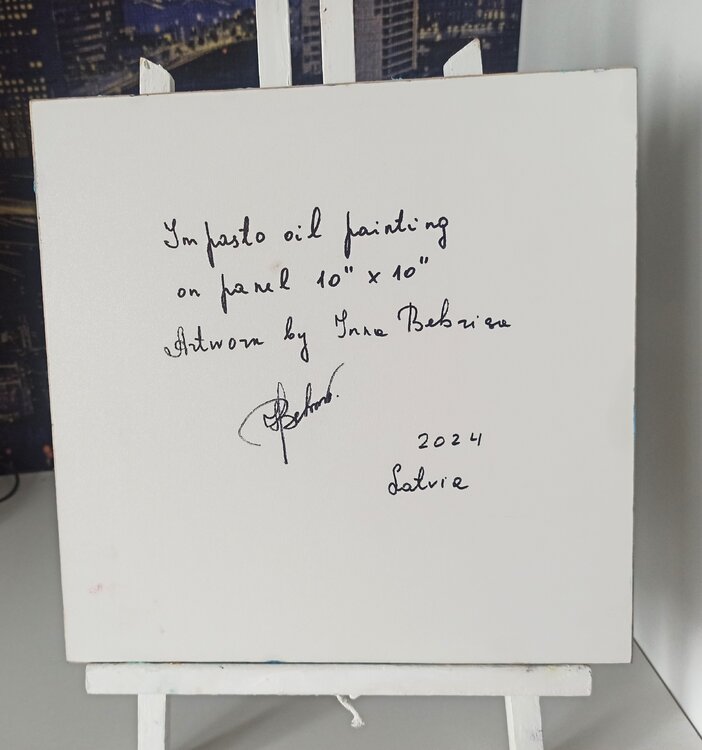 Impasto oil painting
on panel 10" x 10"
Artwork by Inna Bebrisa
2024
Latvia